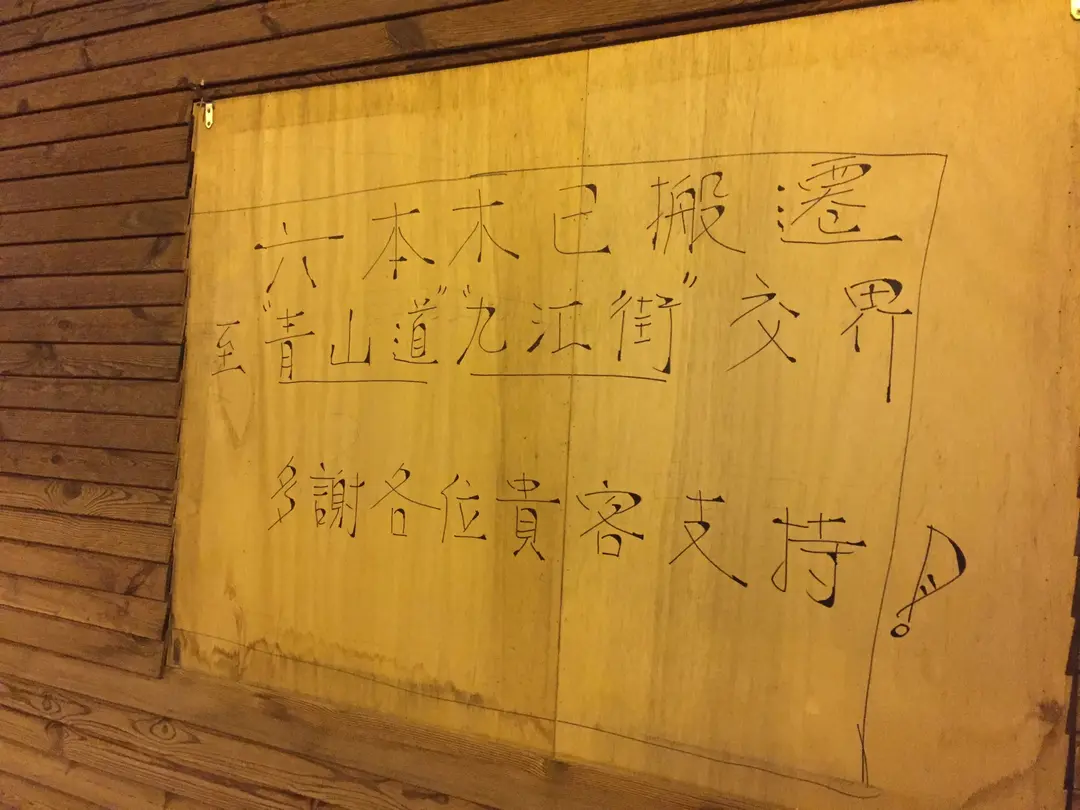 六本木已搬遷
至"青山道""九江街"交界
多謝各位貴客支持!